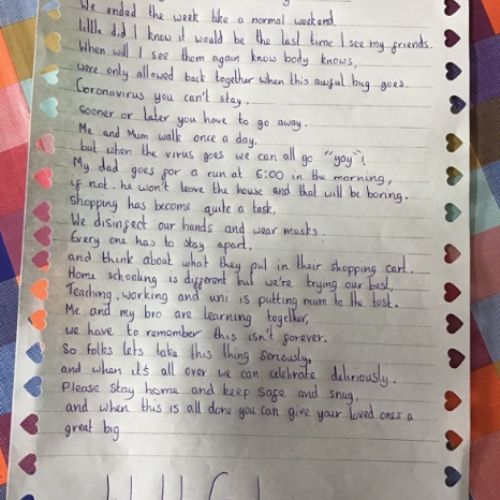 We ended the week like a normal weekend.
little did I know it would be the last time I see my friends.
When will I see them again know body knows,
were only allowed back together when this awful bug goes.
Coronavirus you can't stay.
sooner or later you have to go away.
Me and Mum walk once a day.
but when the virus goes we can all go "yay"!
My dad goes for a run at 6:00 in the morning,
if not. he won't leave the house and that will be boring.
Shopping has become quite a task,
We disinfect our hands and wear masks.
Every one has to stay apart,
and think about what they put in their shopping cart.
Home schooling is different but we're trying our best,
Teaching, working and uni is putting mum to the test.
Me and my bro are learning together,
we have to remember this isn't forever.
So folks lets take this thing seriously,
and when it's all over we can celebrate deliriously.
Please stay home and keep safe and snug,
and when this is all done you can give your loved ones a
great big